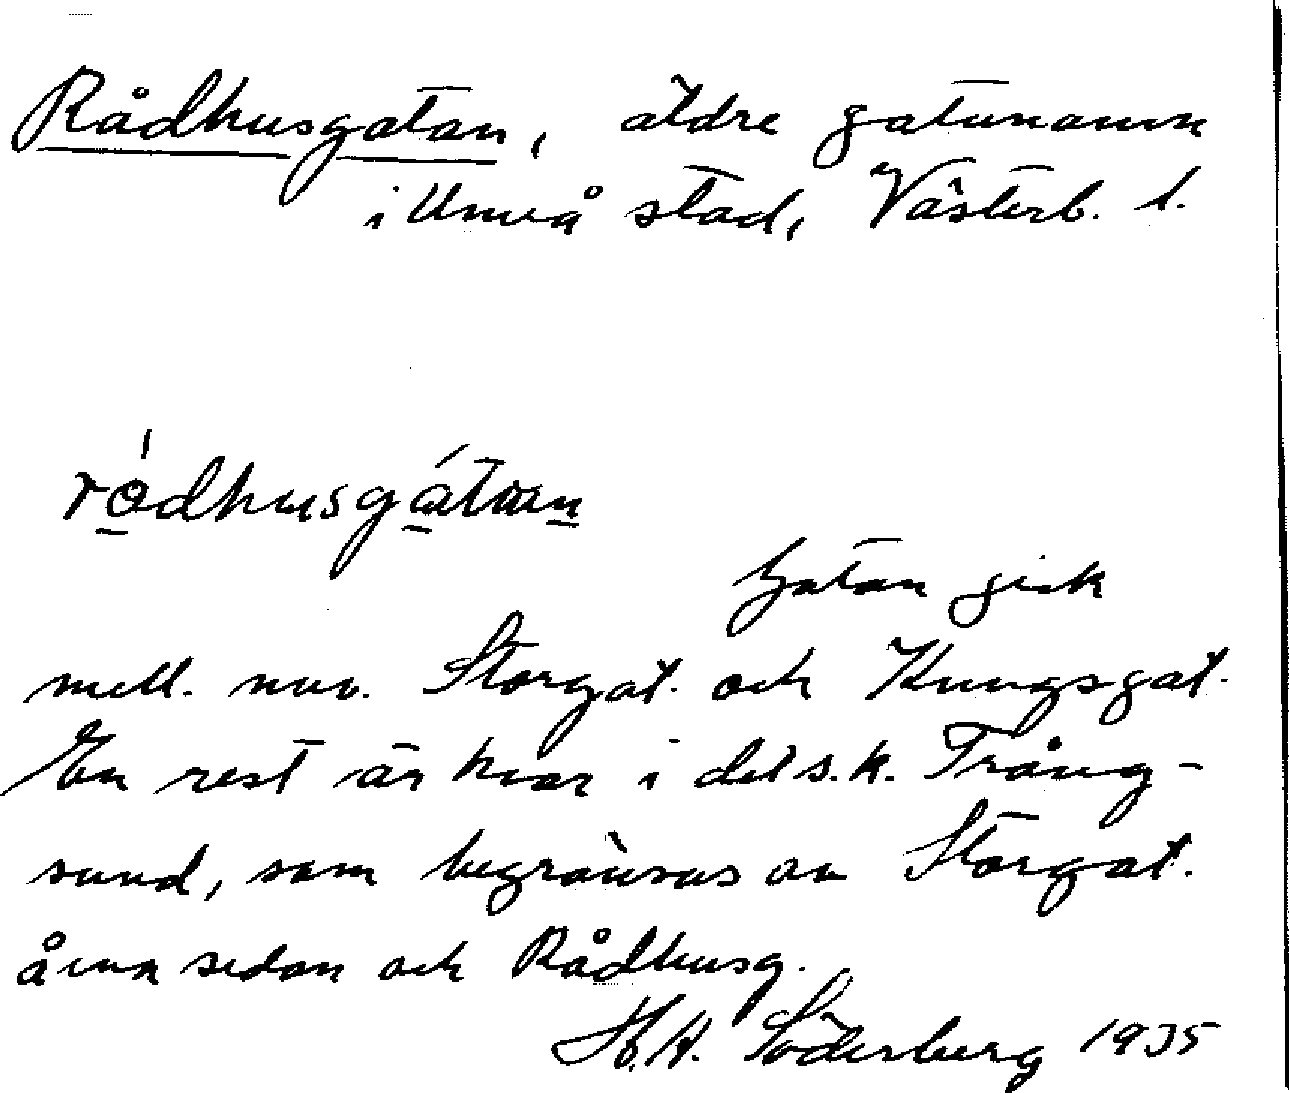 Rådhusgatan, äldre gatunamn
i Umeå stad, Västerb. l.
ródhusgátan
Gatan gick
mell. nuv. Storgat. och Kungsgat.
En rest är kvar i det s.k. Trång-
sund, som begränsas av Storgat.
å ena sedan och Rådhusg.
H. Söderberg 1935